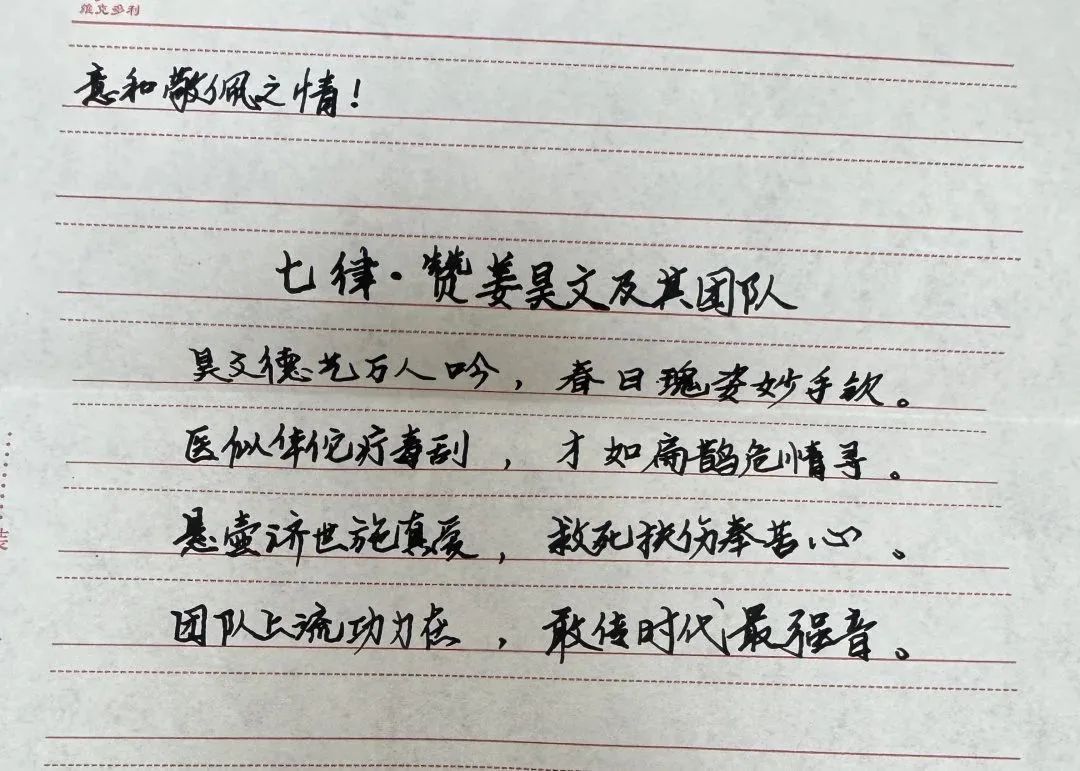 维克多利
意和敬佩之情！
七律·赞姜昊文及其团队
昊文德艺万人吟，春日瑰姿妙手钦。
医似华佗疗毒刮，才如扁鹊危情寻。
悬壶济世施真爱，救死扶伤奉苦心。
团队上流功力在，敢传时代最强音。